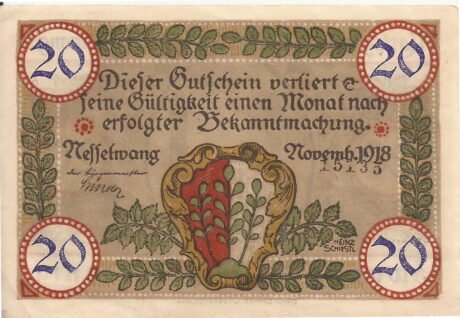 20 20
Dieser Gutschein verliert
seine Gültigkeit einen Monat nach
erfolgter Bekanntmachung.
Nesselwang Novemb. 1918
der Bürgermeister
HEINZ
SCHIESTL
20 20